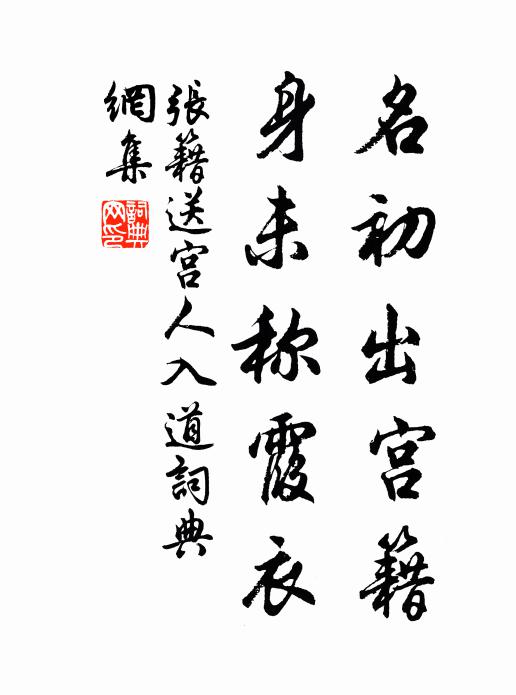 名初出宫籍
身未称霞衣
張籍送宫人入道詞典
網集
詞典
网印